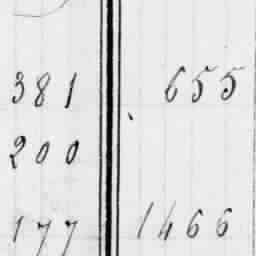 381 655
200
177 1466